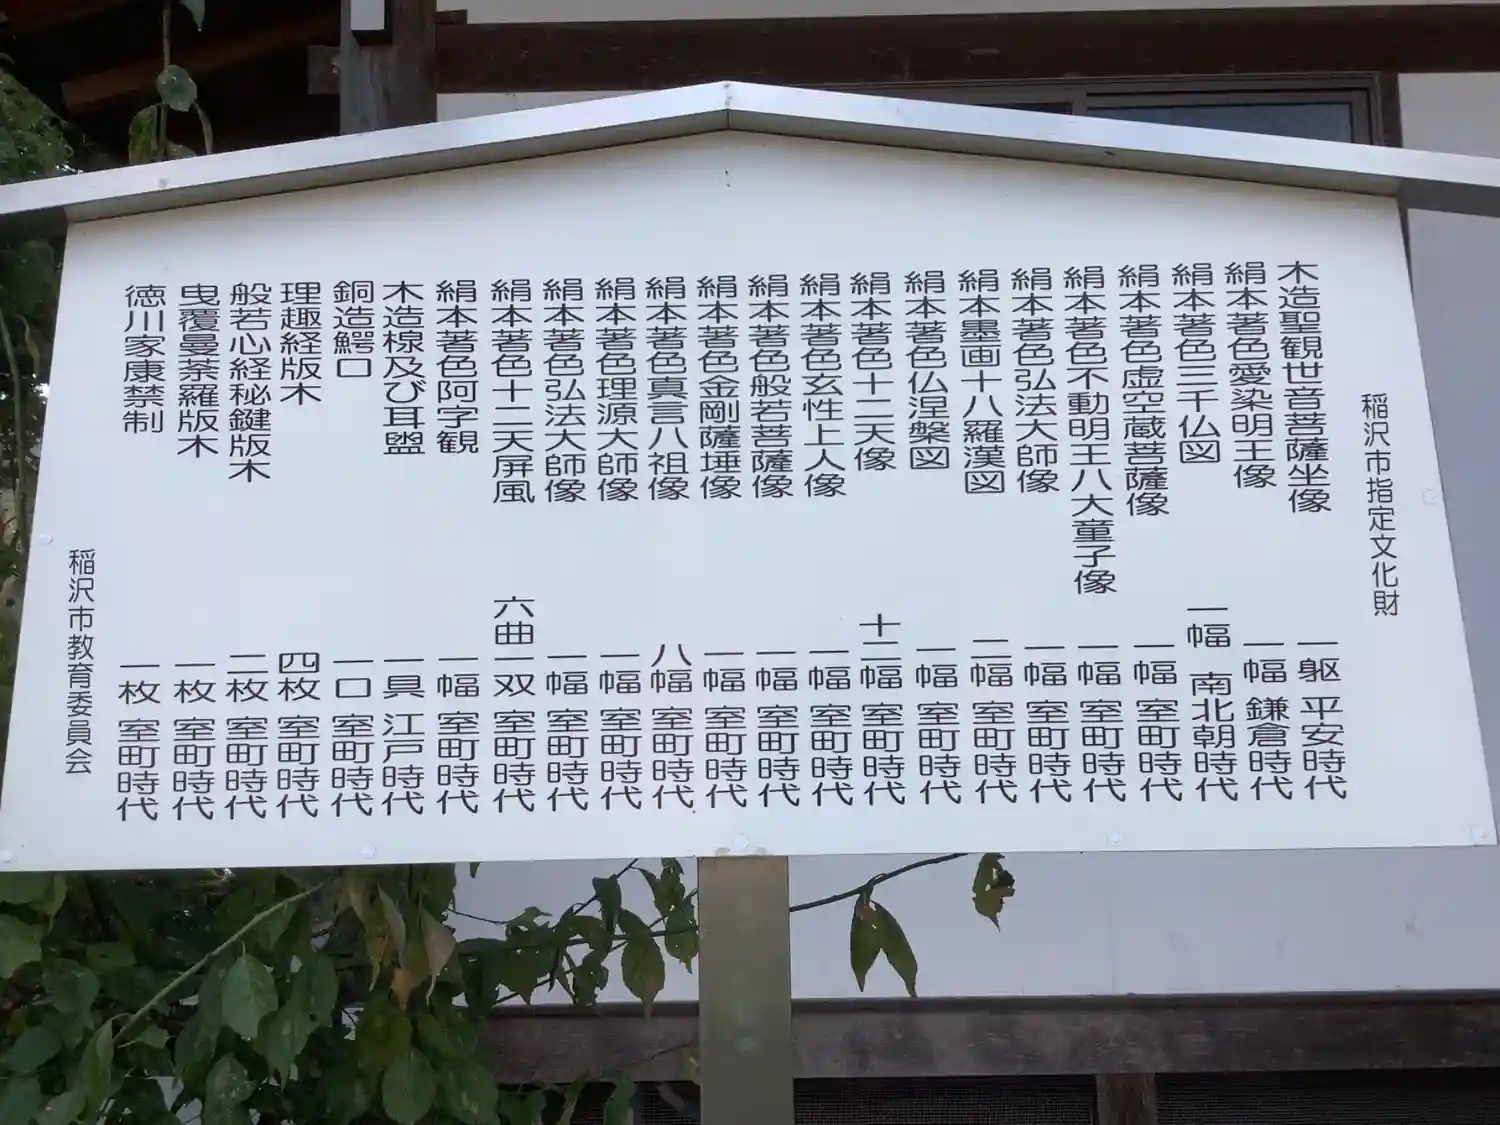 稲沢市指定文化財
木造聖観世音菩薩坐像 一躯 平安時代
絹本著色愛染明王像 一幅 鎌倉時代
絹本著色三千仏図 一幅 南北朝時代
絹本著色虚空蔵菩薩像 一幅 室町時代
絹本著色不動明王八大童子像 一幅 室町時代
絹本著色弘法大師像 一幅 室町時代
絹本墨画十八羅漢図 二幅 室町時代
絹本著色仏涅槃図 一幅 室町時代
絹本著色十二天像 十二幅 室町時代
絹本著色玄性上人像 一幅 室町時代
絹本著色般若菩薩像 一幅 室町時代
絹本著色金剛薩埵像 一幅 室町時代
絹本著色真言八祖像 八幅 室町時代
絹本著色理源大師像 一幅 室町時代
絹本著色弘法大師像 一幅 室町時代
絹本著色十二天屏風 六曲一双 室町時代
絹本著色阿字観 一幅 室町時代
木造楾及び耳盥 一具 江戸時代
銅造鰐口 一口 室町時代
理趣経版木 四枚 室町時代
般若心経秘鍵版木 二枚 室町時代
曳覆曼荼羅版木 一枚 室町時代
徳川家康禁制 一枚 室町時代
稲沢市教育委員会